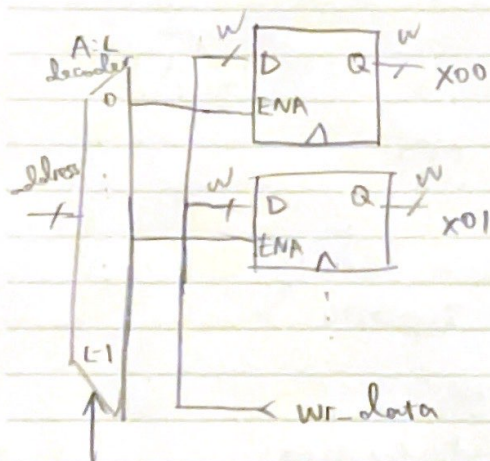 A:L
decoder
0
address
L-1
W
D
Q
W
X00
ENA
W
D
Q
W
X01
ENA
wr_data